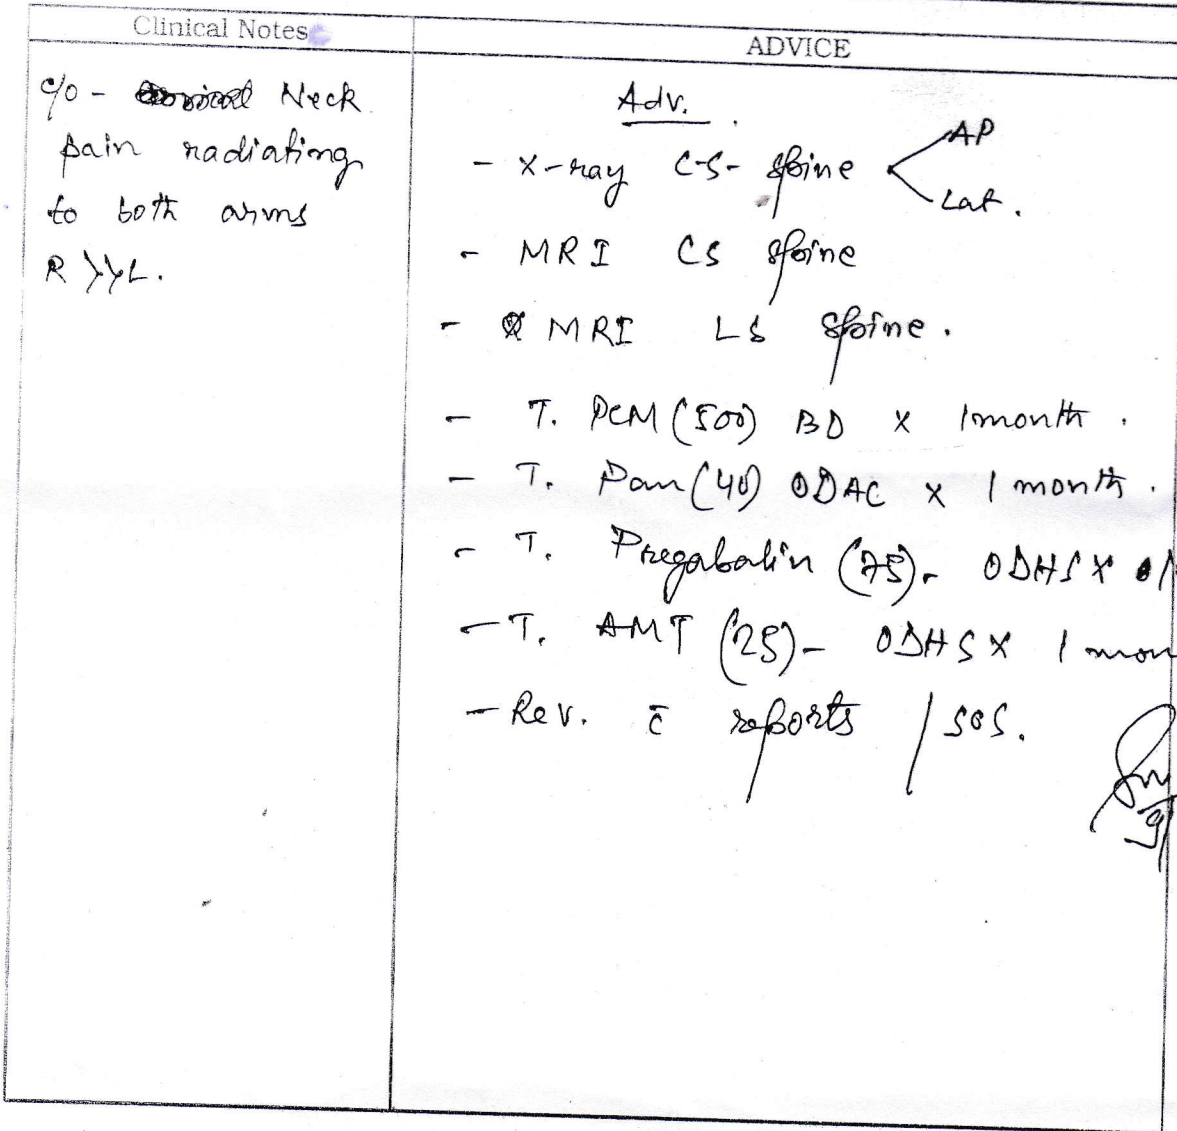 Clinical Notes
c/o - Neck
pain radiating
to both arms
R >>L.
ADVICE
Adv.
- X-ray C-S- spine < AP
Lat.
- MRI CS spine
- MRI LS spine.
- T. PCM (500) BD x 1 month.
- T. Pan (40) ODAC x 1 month.
- T. Pregabalin (75)- ODHS x
- T. AMT (25)- ODHS x 1 mon
- Rev. c̄ reports / SOS.